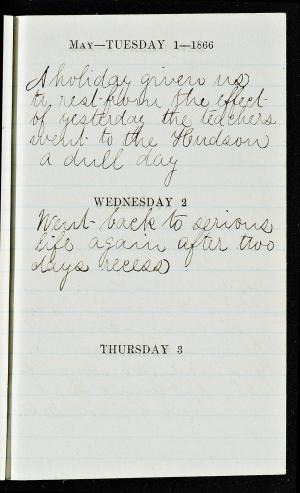 May—TUESDAY 1—1866
A holiday given us
to rest from the effect
of yesterday the teachers
went to the Hudson
a dull day
WEDNESDAY 2
Went back to serious
life again after two
days recess
THURSDAY 3